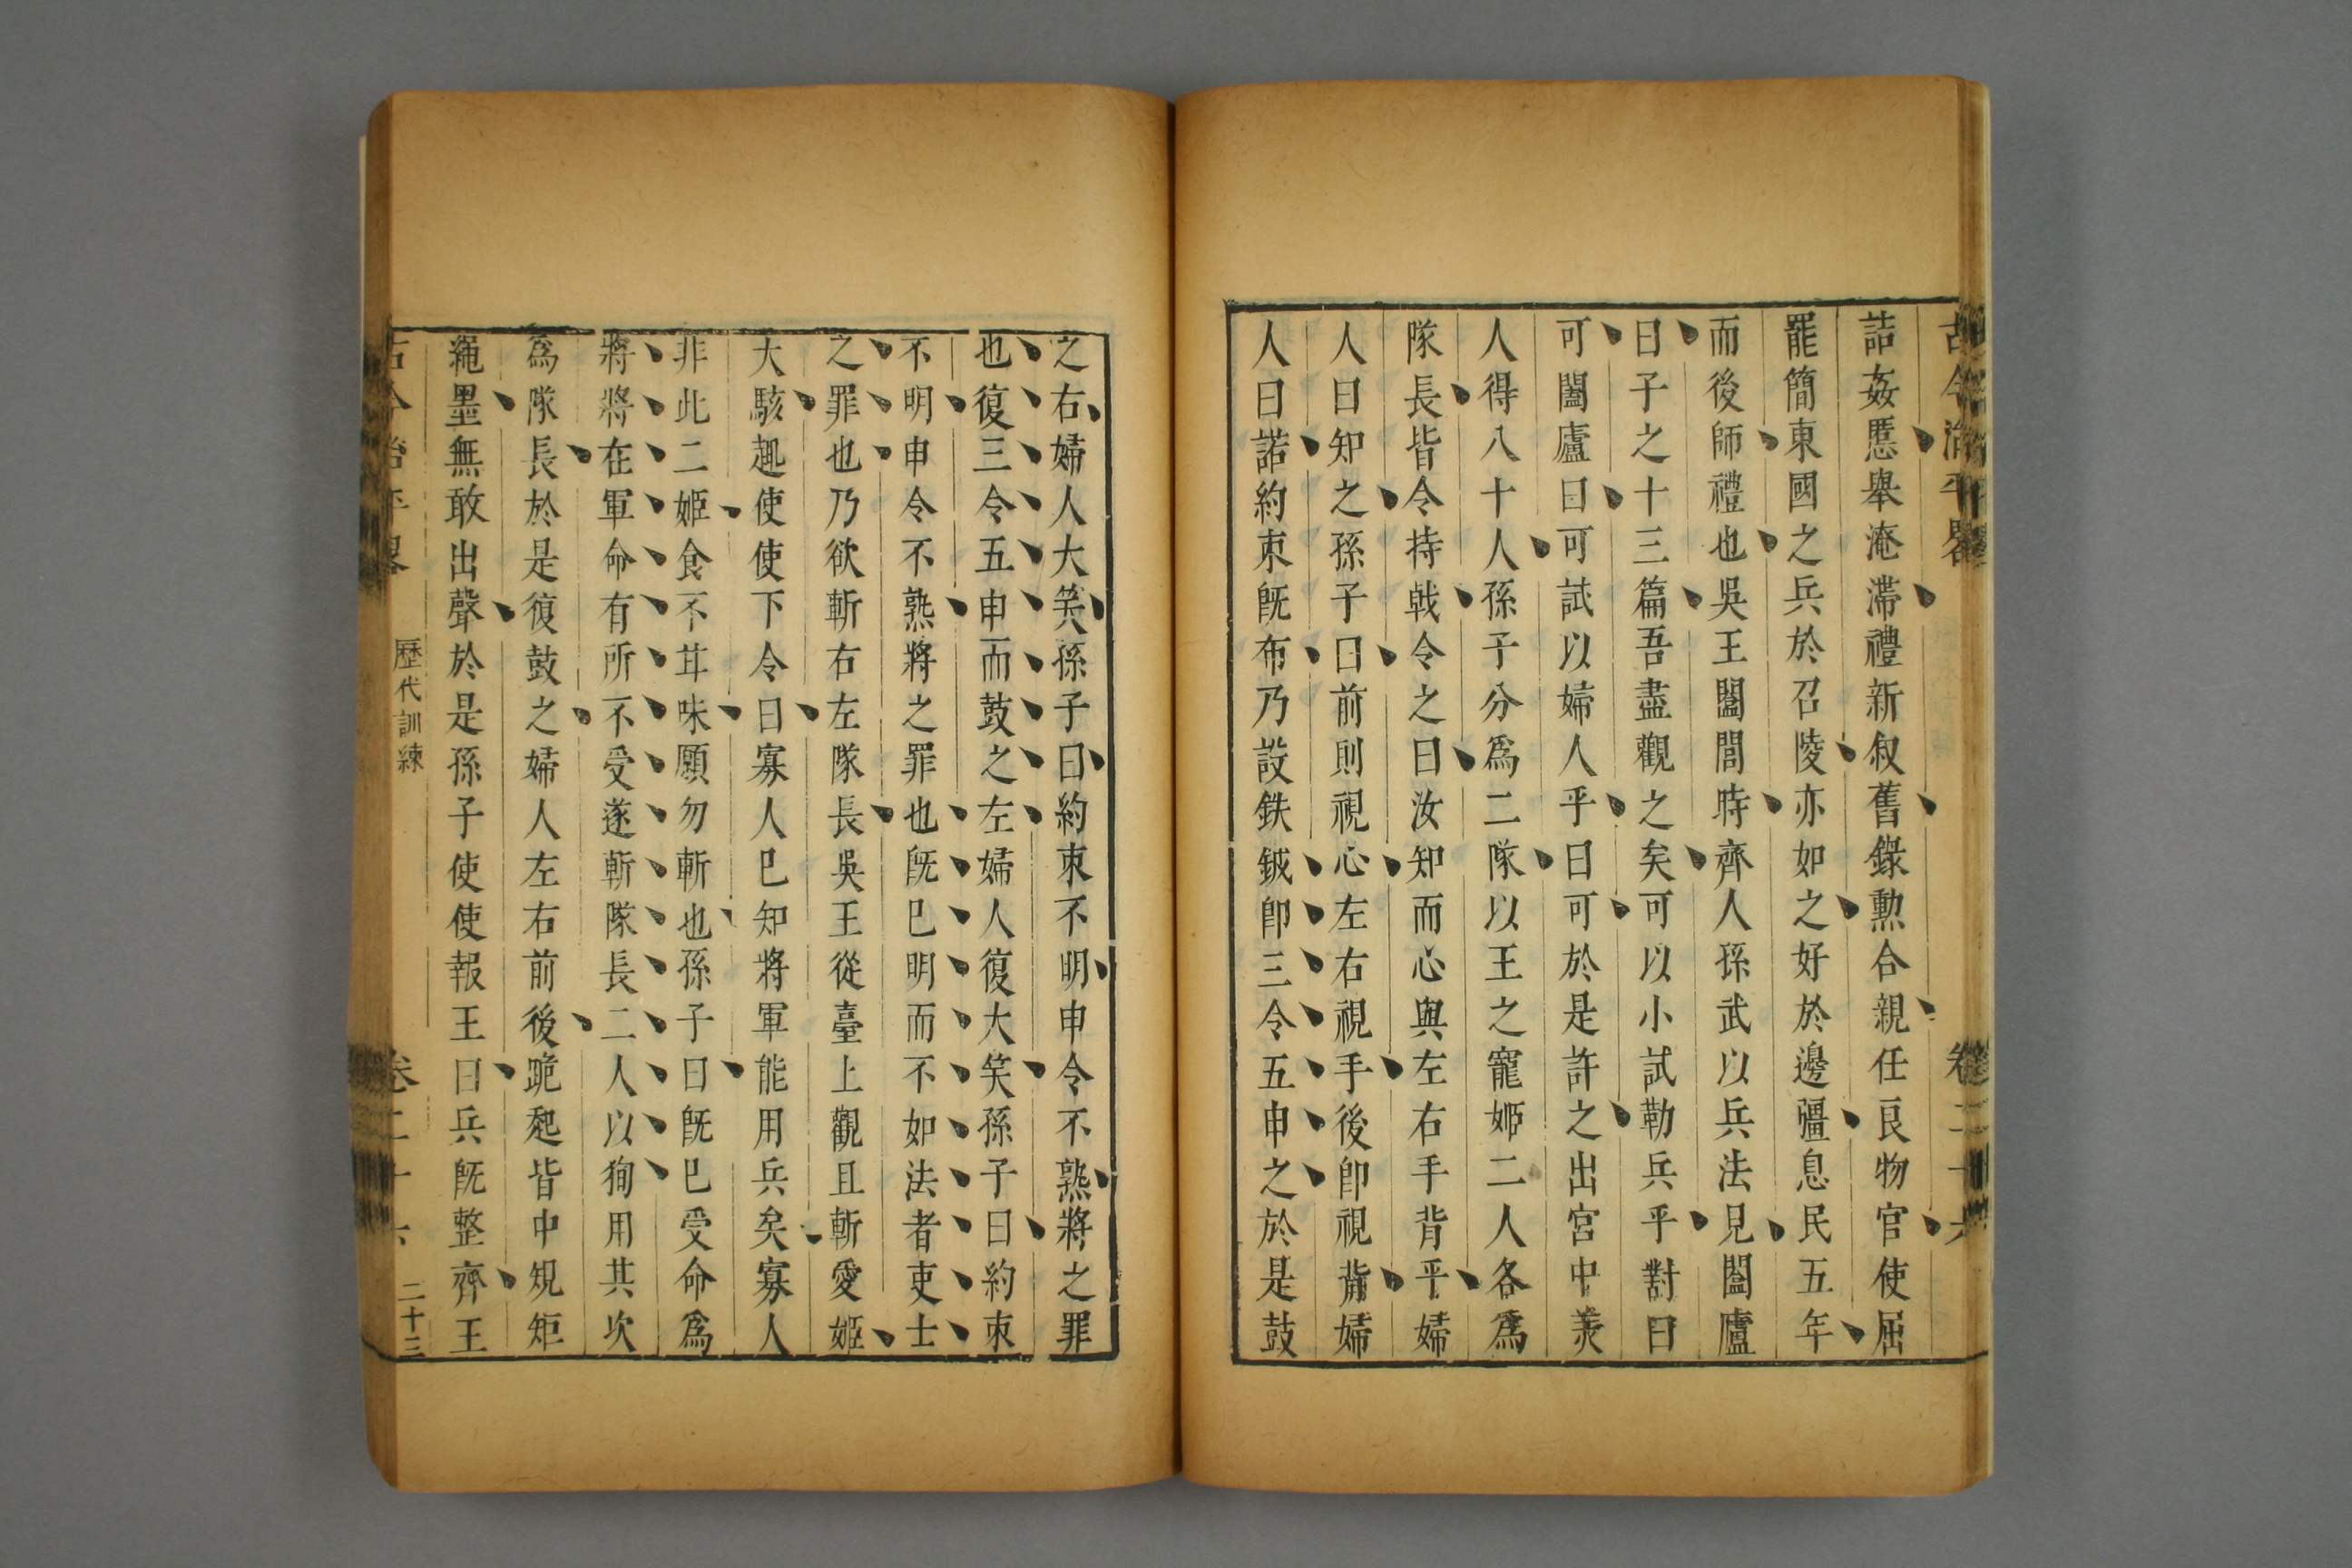 古今治平畧 卷二十六
詰姦慝舉淹滯禮新叙舊錄勲合親任良物官使屈
罷簡東國之兵於召陵亦如之好於邊疆息民五年
而後師禮也吳王闔閭時齊人孫武以兵法見闔廬
曰子之十三篇吾盡觀之矣可以小試勒兵乎對曰
可闔廬曰可試以婦人乎曰可於是許之出宮中美
人得八十人孫子分爲二隊以王之寵姬二人各爲
隊長皆令持戟令之曰汝知而心與左右手背乎婦
人曰知之孫子曰前則視心左右視手後卽視背婦
人曰諾約束旣布乃設鈇鉞卽三令五申之於是鼓
之右婦人大笑孫子曰約束不明申令不熟將之罪
也復三令五申而鼓之左婦人復大笑孫子曰約束
不明申令不熟將之罪也旣已明而不如法者吏士
之罪也乃欲斬右左隊長吳王從臺上觀且斬愛姬
大駭趣使使下令曰寡人已知將軍能用兵矣寡人
非此二姬食不甘味願勿斬也孫子曰旣已受命爲
將將在軍命有所不受遂斬隊長二人以狥用其次
爲隊長於是復鼓之婦人左右前後跪起皆中規矩
繩墨無敢出聲於是孫子使使報王曰兵旣整齊王
古今治平畧 歷代訓練 卷二十六 二十三